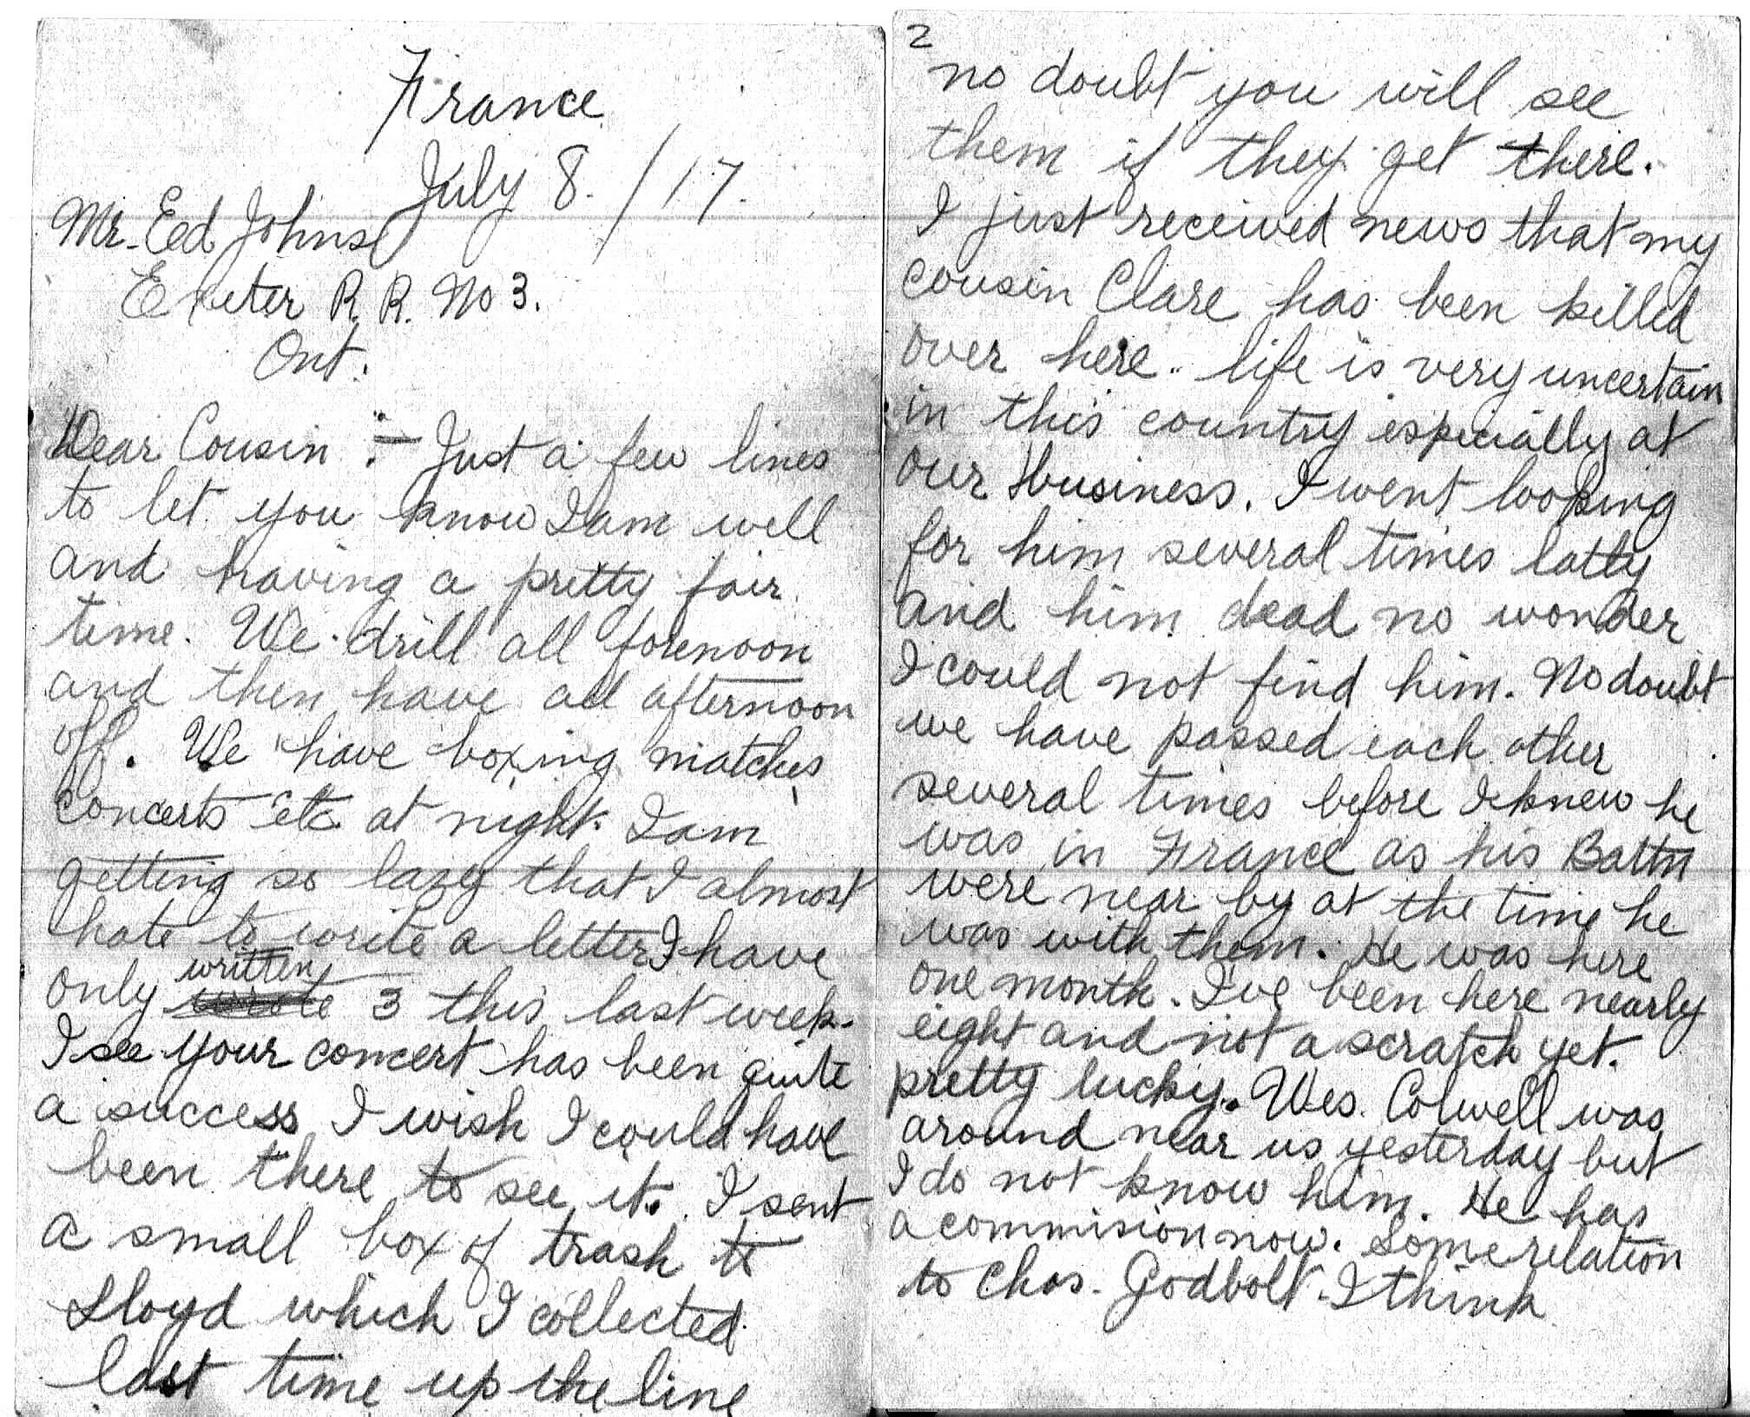 France
July 8./17.
Mr. Ed Johns
Exeter R.R. No 3.
Ont.
Dear Cousin :- Just a few lines
to let you know I am well
and having a pretty fair
time. We drill all forenoon
and then have all afternoon
off. We have boxing matches,
concerts etc at night. I am
getting so lazy that I almost
hate to write a letter I have
only written 3 this last week.
I see your concert has been quite
a success I wish I could have
been there to see it. I sent
a small box of trash to
Lloyd which I collected
last time up the line
2
no doubt you will see
them if they get there.
I just received news that my
cousin Clare has been killed
over here. life is very uncertain
in this country especially at
our business. I went looking
for him several times latly
and him dead no wonder
I could not find him. No doubt
we have passed each other
several times before I knew he
was in France as his Battn
were near by at the time he
was with them. He was here
one month. I've been here nearly
eight and not a scratch yet.
pretty lucky. Wes. Colwell was
around near us yesterday but
I do not know him. He has
a commision now. Some relation
to Chas. Godbolt I think